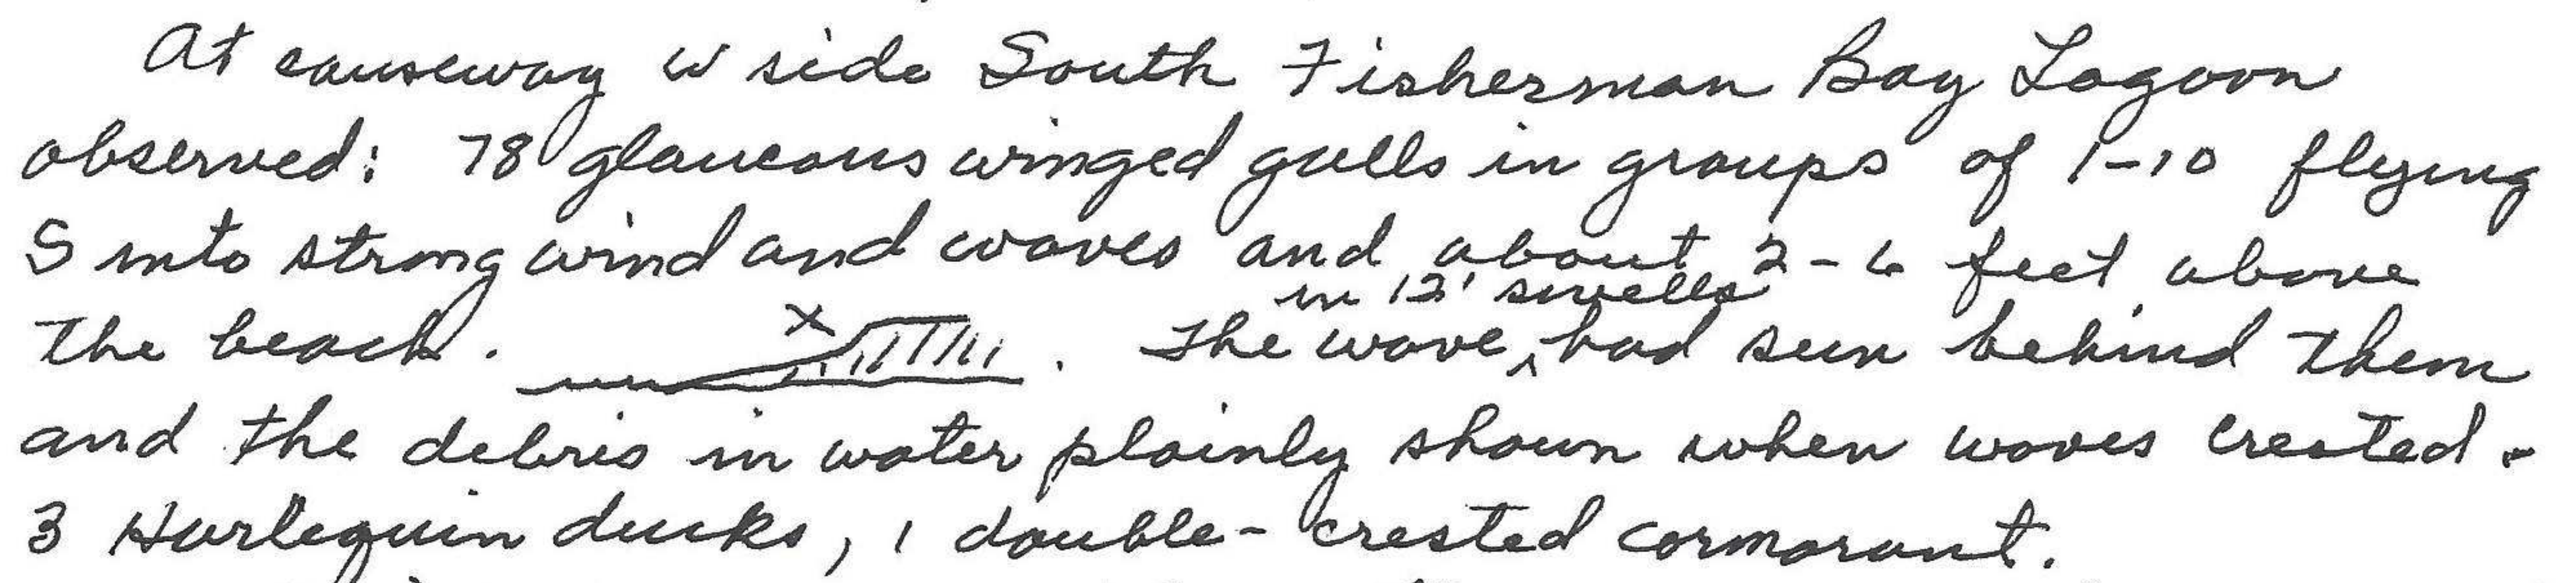 At causeway W side South Fisherman Bay Lagoon
observed: 78 glaucous winged gulls in groups of 1-10 flying
S into strong wind and waves and about 2-6 feet above
in 12' swells
the beach. . The wave, had sun behind them
and the debris in water plainly shown when waves crested.
3 Harlequin ducks, 1 double-crested cormorant.